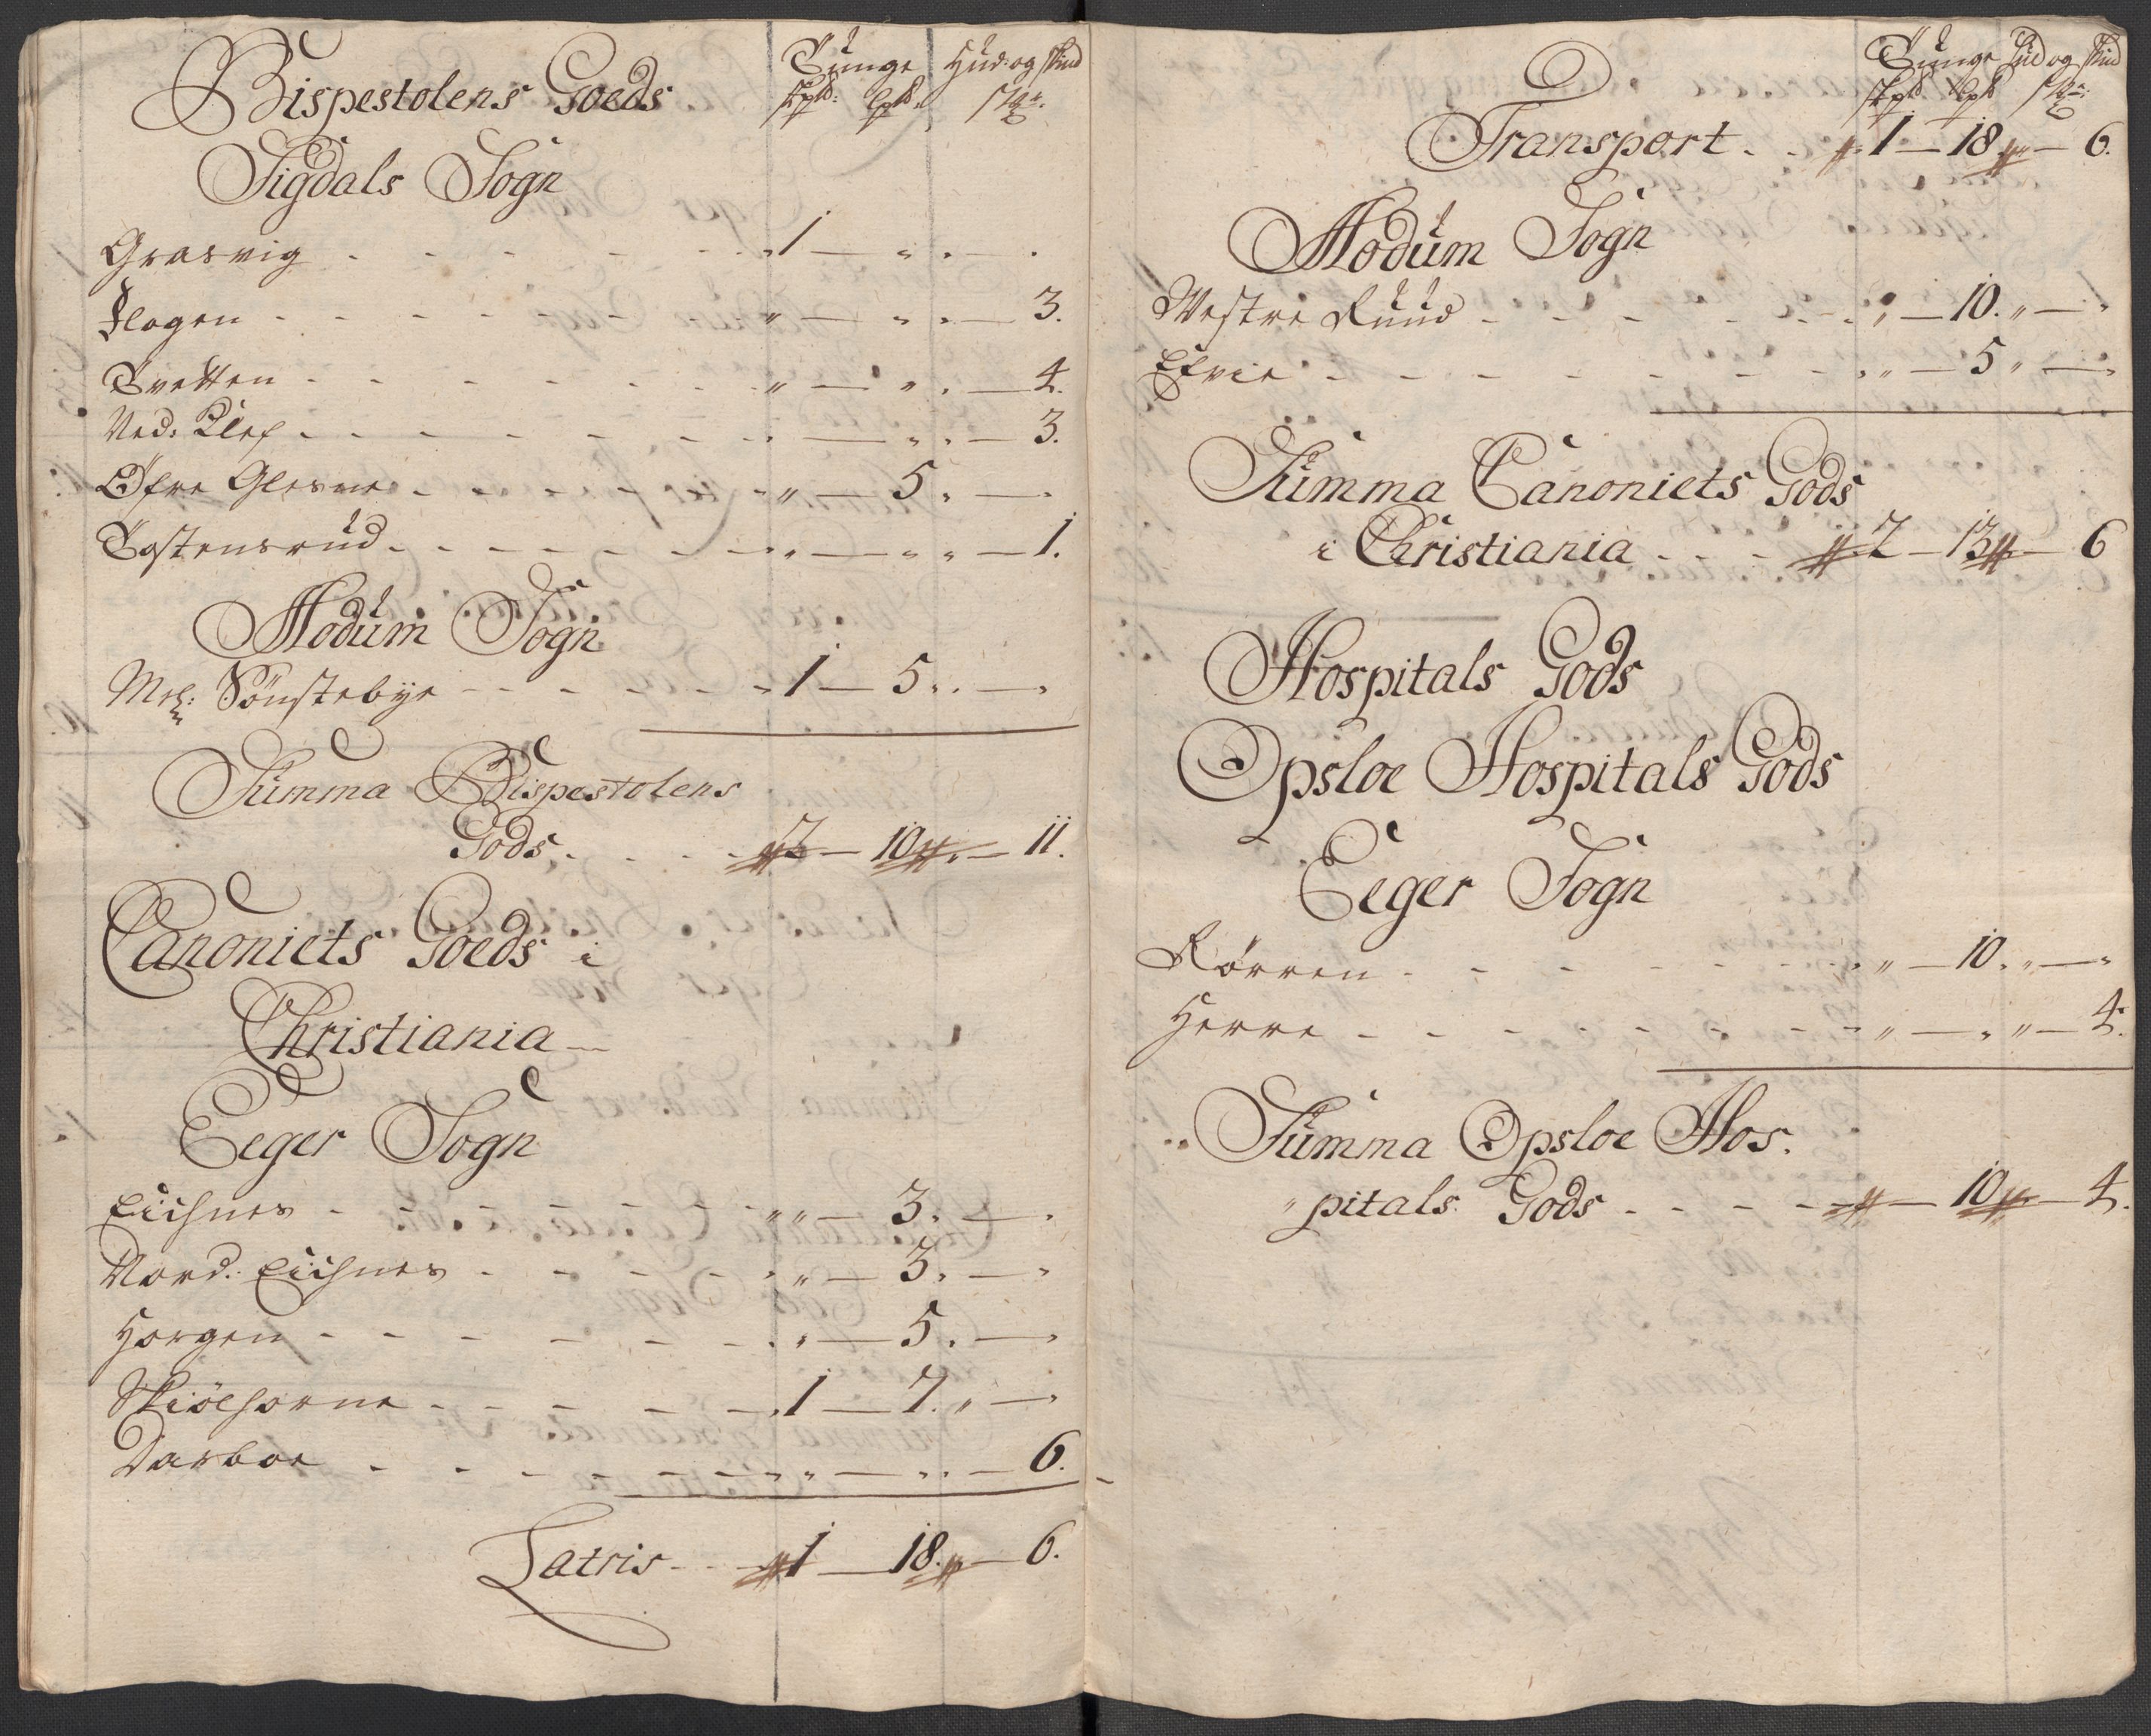 Bispestolens Goeds. Tunge Hud- og skind
skpd: lpd. Stk:
Sigdals Sogn
Grasvig - - - - - - „ 1 — „ „ — „
Flagen - - - - - - „ — „ „ — 3.
Tvetten - - - - - - „ — „ „ — 4.
Ned: Klef - - - - - - „ — „ „ — 3.
Øfre Glesne - - - - - „ — 5 „ — „
Tostensrud - - - - - „ — „ „ — 1.
Modum Sogn
Mel: Sønstebye - - - - - 1 — 5 „ — „
Summa Bispestolens
Gods - - - 2 — 10 „ — 11.
Canoniets Goeds i
Christiania
Eeger Sogn
Eichnes - - - - - - „ „ — 3. — „
Nord: Eichnes - - - - „ „ — 3. — „
Horgen - - - - - - „ „ — 5. — „
Skiølhorne - - - - - „ 1 — 7. „ — „
Darboe - - - - - - „ „ — „ „ — 6.
Latris - - 1 — 18. „ — 6.
Tunge Hud og skind
skpd lpd Stk:
Transport - - „ 1 — 18 „ — 6.
Modum Sogn
Westre Ruud - - - - - „ — 10. „ — „
Efvie - - - - - - „ „ — 5 „ — „
Summa Canoniets Gods
i Christiania - - - 2 — 13 „ — 6
Hospitals Gods
Opsloe Hospitals Gods
Eeger Sogn
Rørren - - - - - - „ „ — 10. „ — „
Herre - - - - - - „ „ — „ „ — 4.
Summa Opsloe Hos.
pitals Gods - - - - „ — 10 „ — 4.